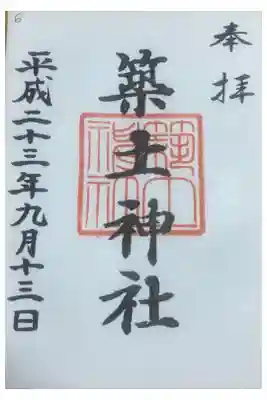 奉拝
築土神社
平成二十三年九月十三日
6